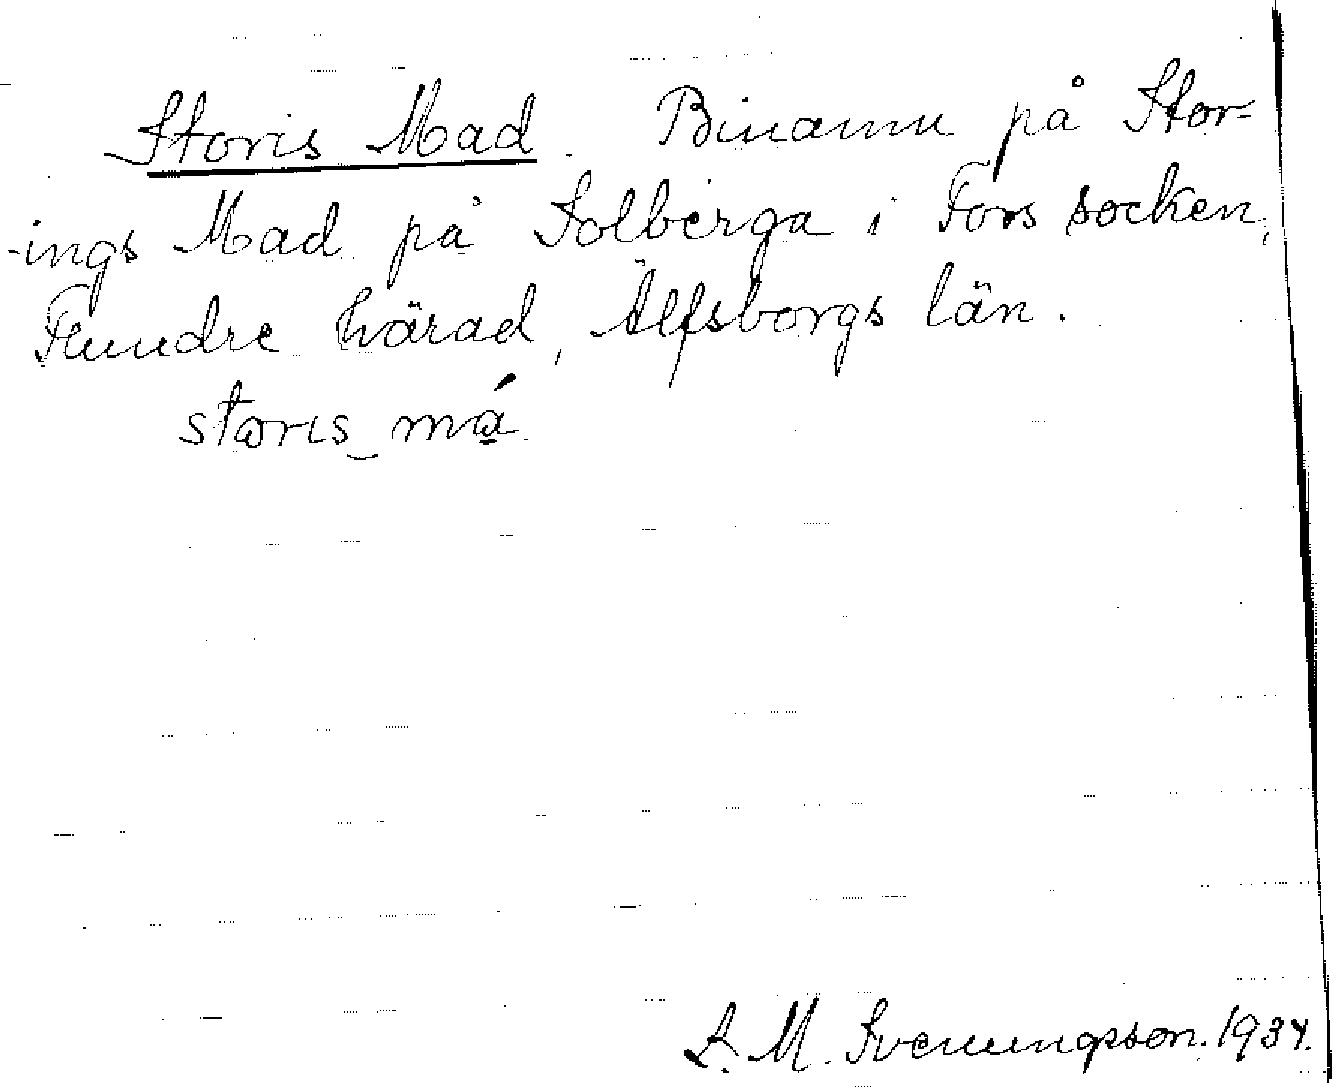 Storis Mad. Binamn på Stor-
-ings Mad på Solberga i Fors socken,
Flundre härad, Älfsborgs län.
storıs má
L. M. Svenungsson. 1934.